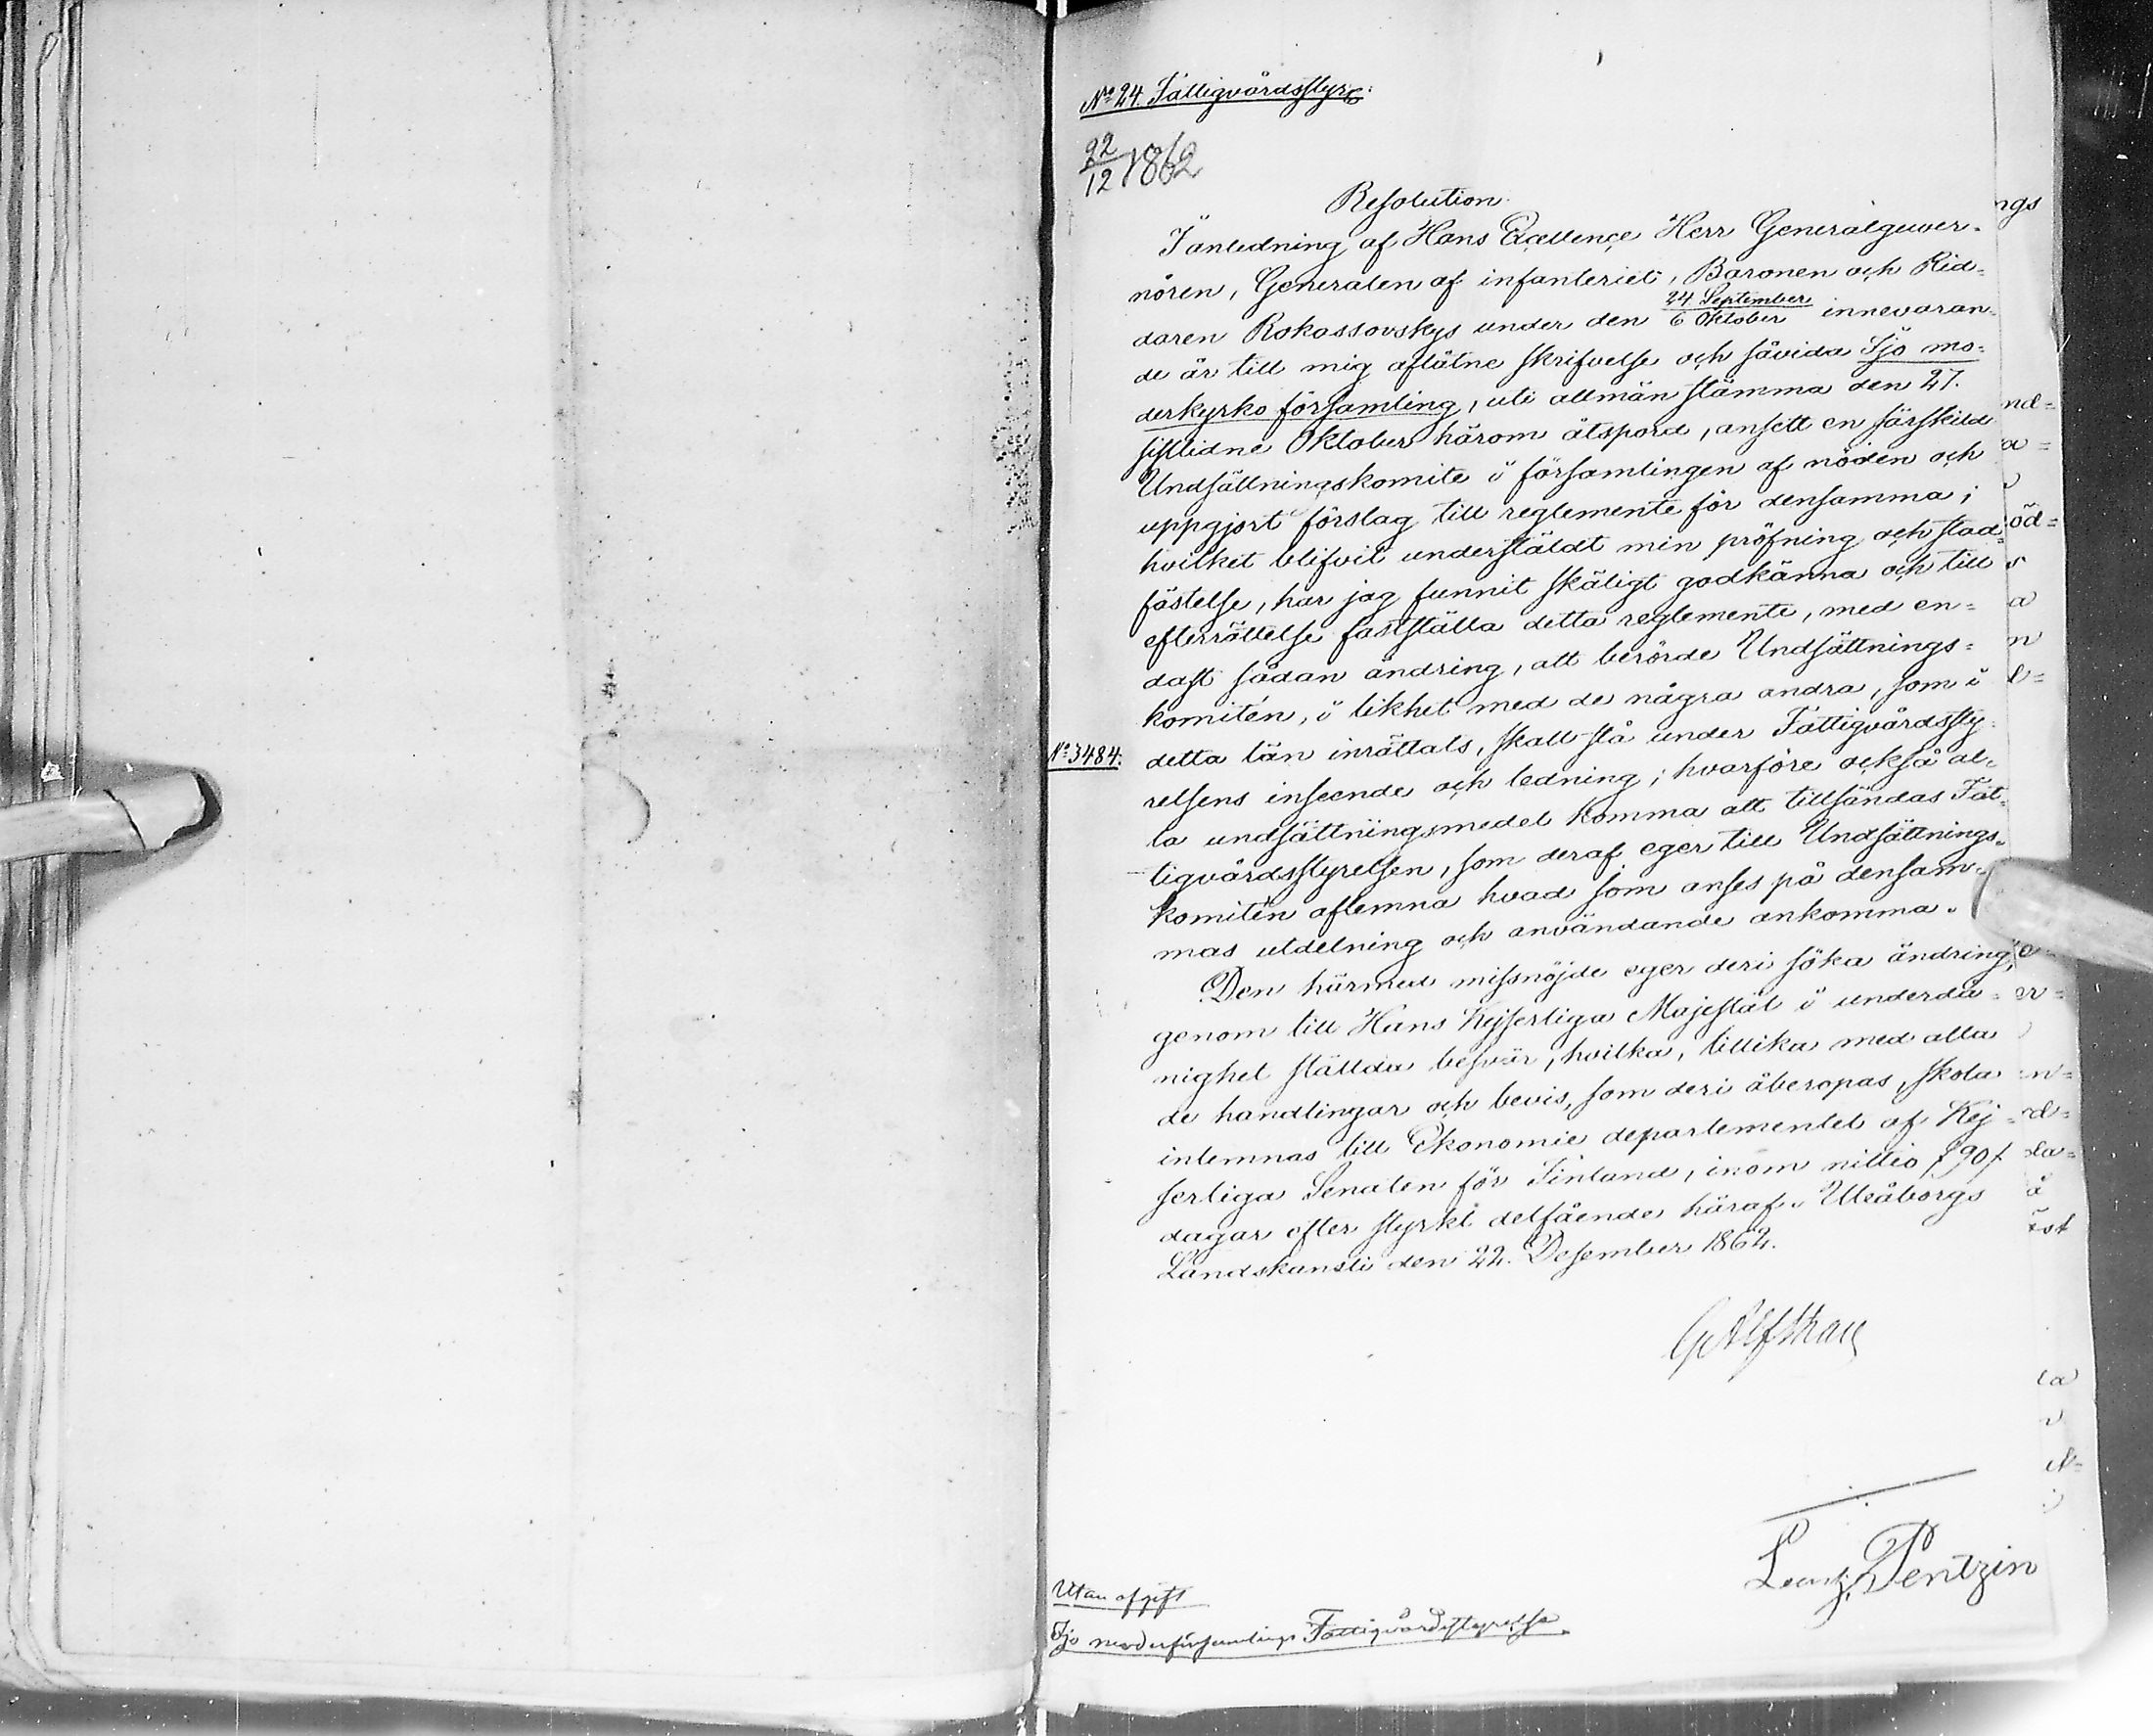 No 24. Fattigvårdsstyr:
22/12 1862
Resolution.
I anledning af Hans Excellençe Herr Generalguver-
nören, Generalen af infanteriet, Baronen och Rid-
daren Rokassovskys under den 24 September / 6 Oktober innevaran-
de år till mig aflåtne skrifvelse och såvida Ijo mo-
derkyrko församling, uti allmän stämma den 27.
sistlidne Oktober härom åtspord, ansett en särskild
Undsättningskomite i församlingen af nöden och
uppgjort förslag till reglemente för densamma;
hvilket blifvit underställdt min pröfning och stad-
fästelse, har jag funnit skäligt godkänna och till
efterrättelse fastställa detta reglemente, med en-
dast sådan ändring, att berörde Undsättnings-
komitén, i likhet med de några andra, som i
No 3484.
detta län inrättats, skall stå under Fattigvårdssty-
relsens inseende och ledning; hvarföre också al-
la undsättningsmedel komma att tillsändas Fat-
tigvårdsstyrelsen, som deraf eger till Undsättnings-
komitén aflemna hvad som anses på densam-
mas utdelning och användande ankomma.
Den härmed missnöjde eger deri söka ändring,
genom till Hans Kejserliga Majestät i underdå-
nighet ställda besvär, hvilka, tillika med alla
de handlingar och bevis, som deri åberopas, skola
inlemnas till Ekonomie departementet af Kej-
serliga Senaten för Finland, inom nittio /90/
dagar efter styrkt delfående häraf. Uleåborgs
Landskansli den 22. Desember 1862.
G Alfthan
Pentzin
Utan afgift
Ijo moderförsamlings Fattigvårdsstyrelse.